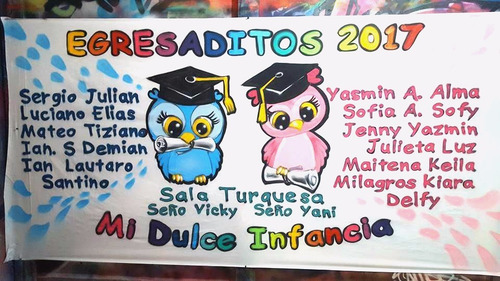 EGRESADITOS 2017
Sergio Julian
Luciano Elias
Mateo Tiziano
Ian. S Demian
Ian Lautaro
Santino
Yasmin A. Alma
Sofia A. Sofy
Jenny Yazmin
Julieta Luz
Maitena Keila
Milagros Kiara
Delfy
Sala Turquesa
Seño Vicky Seño Yani
Mi Dulce Infancia